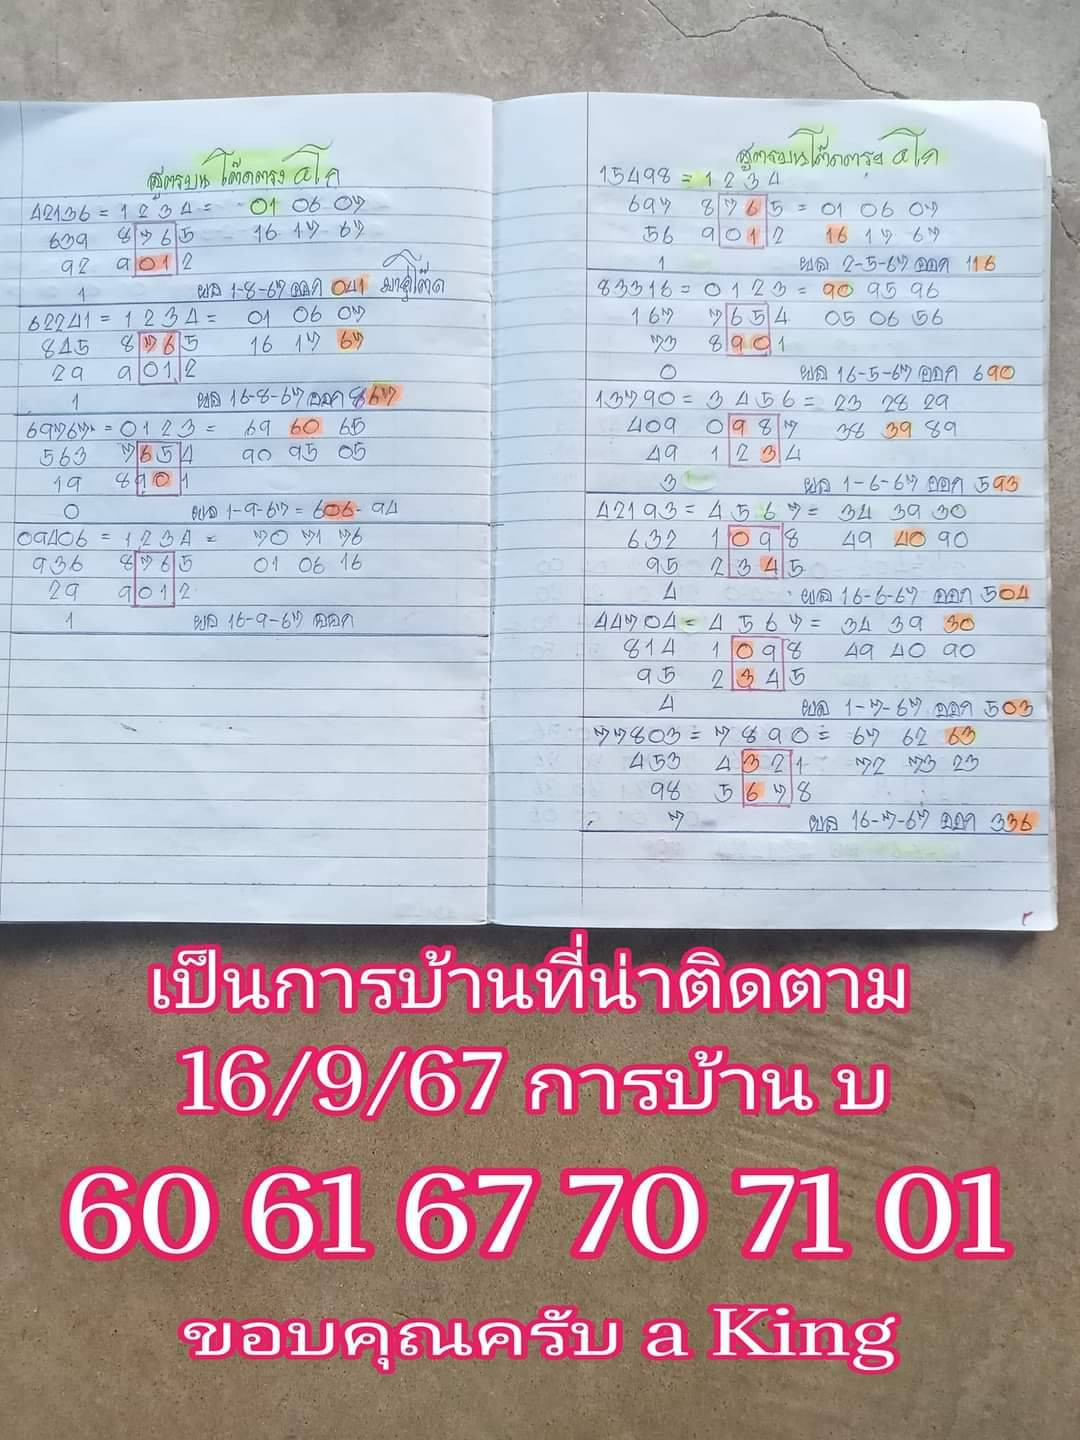 สูตรบน โต๊ดตรง ๔ โก
42136 = 1 2 3 4 = 01 06 07
639 8 7 6 5 16 17 67
92 9 0 1 2
1 ผล 1-8-67 ออก 041 มาคู่โต๊ด
62241 = 1 2 3 4 = 01 06 07
845 8 7 6 5 16 17 67
29 9 0 1 2
1 ผล 16-8-67 ออก 867
69767 = 0 1 2 3 = 69 60 65
563 7 6 5 4 90 95 05
19 8 9 0 1
0 ผล 1-9-67 = 606 - 94
09406 = 1 2 3 4 = 70 71 76
936 8 7 6 5 01 06 16
29 9 0 1 2
1 ผล 16-9-67 ออก
สูตรบนโต๊ดตรง ๔ โก
15498 = 1 2 3 4
697 8 7 6 5 = 01 06 07
56 9 0 1 2 16 17 67
1 ผล 2-5-67 ออก 116
83316 = 0 1 2 3 = 90 95 96
167 7 6 5 4 05 06 56
73 8 9 0 1
0 ผล 16-5-67 ออก 690
13790 = 3 4 5 6 = 23 28 29
409 0 9 8 7 38 39 89
49 1 2 3 4
3 ผล 1-6-67 ออก 593
42193 = 4 5 6 7 = 34 39 30
632 1 0 9 8 49 40 90
95 2 3 4 5
4 ผล 16-6-67 ออก 504
44704 = 4 5 6 7 = 34 39 30
814 1 0 9 8 49 40 90
95 2 3 4 5
4 ผล 1-7-67 ออก 503
77803 = 7 8 9 0 = 67 62 63
453 4 3 2 1 72 73 23
98 5 6 7 8
7 ผล 16-7-67 ออก 336
เป็นการบ้านที่น่าติดตาม
16/9/67 การบ้าน บ
60 61 67 70 71 01
ขอบคุณครับ a King